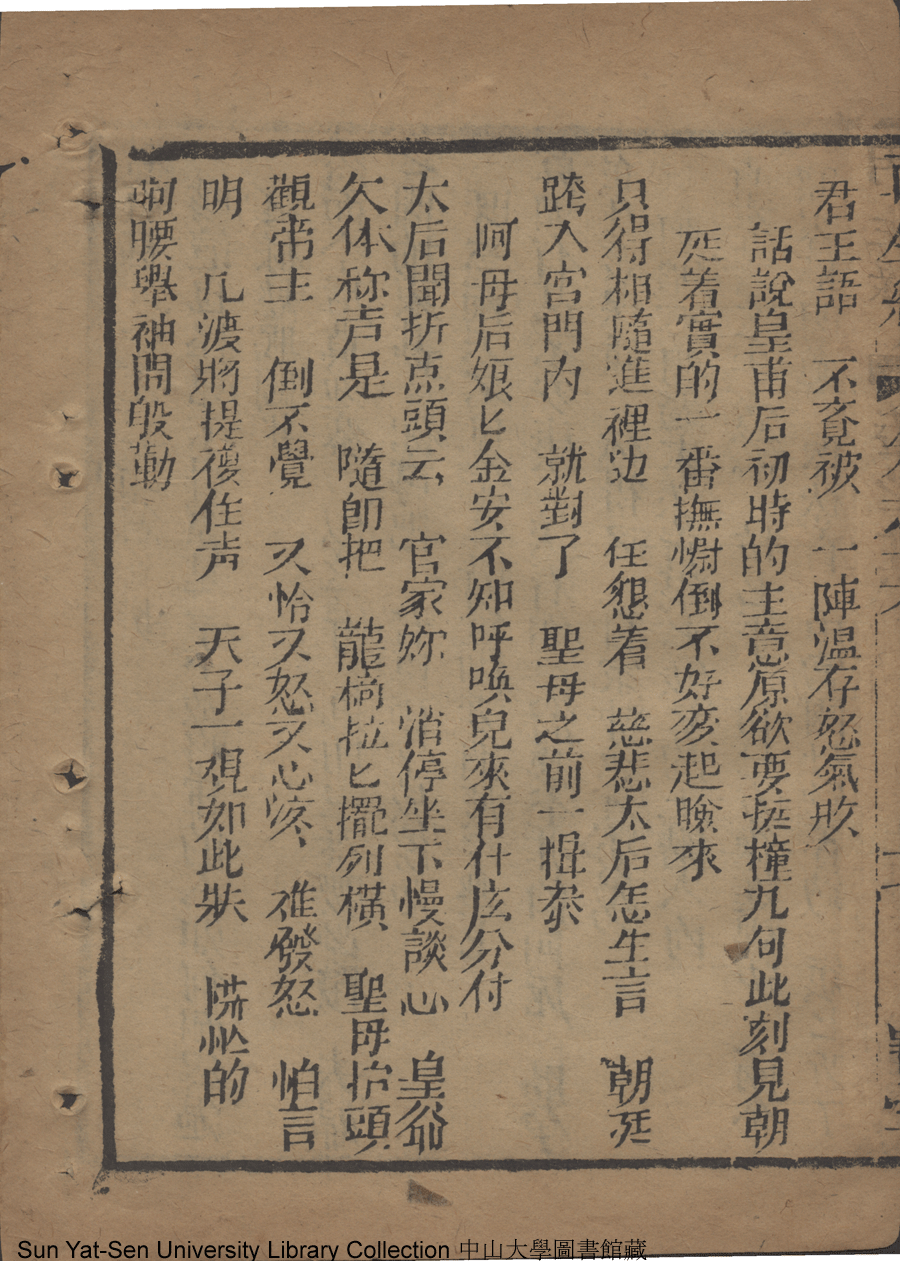 君王語　不竟被　一陣温存怒氣敗
話說皇甫后初時的主意原欲要挺撞九句此刻見朝
廷着實的一番撫慰倒不好変起臉來
只得相隨進裡边　任懇着　慈悲太后怎生言　朝廷
跨入宮門內　就對了　聖母之前一揖恭
呵母后娘匕金安不知呼喚兒來有什庅分付
太后聞折点頭云　官家妳　消停坐下慢談心　皇爺
欠体称声是　隨即把　龍椅拉匕擺列橫　聖母抬頭
觀帝主　倒不覺　又怜又怒又心疼、　准發怒　怕言
明　几渡將提復住声　天子一覌如此狀　慌忙的
呵腰舉袖問殷勤
Sun Yat-Sen University Library Collection 中山大學圖書館藏